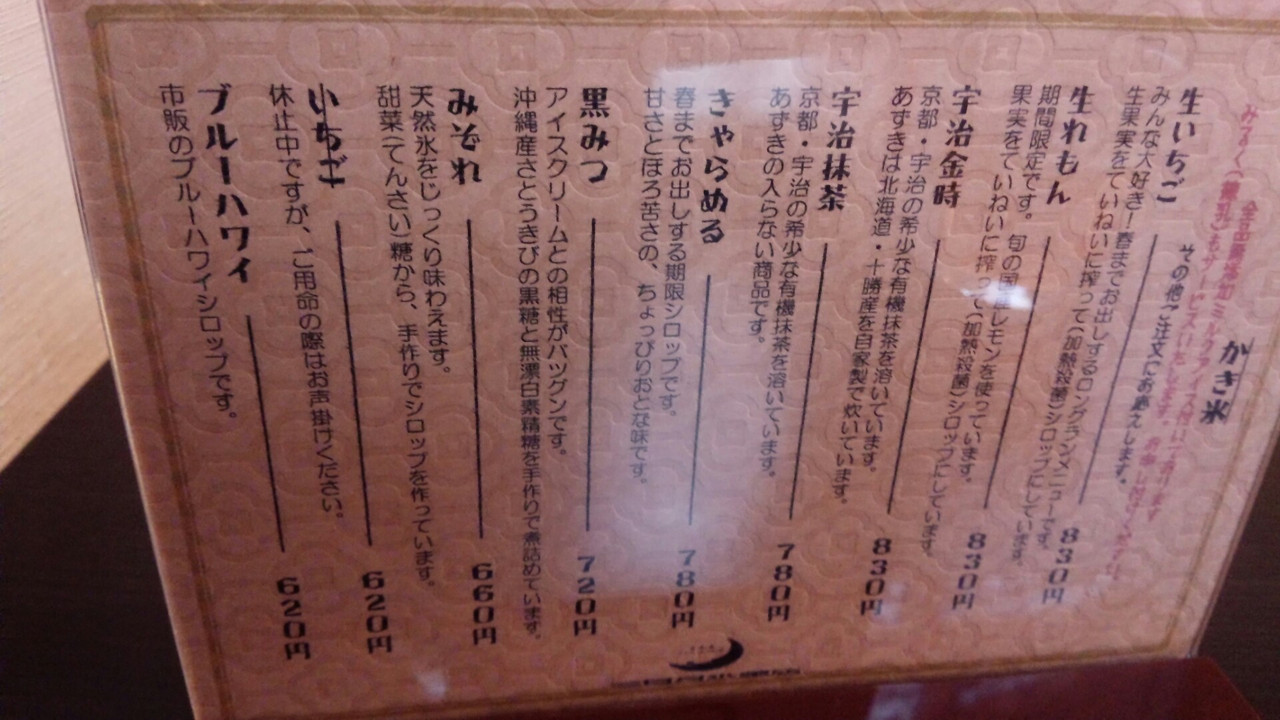 かき氷
その他ご注文にお応えします。
生いちご 830円
みんな大好き!春までお出しするロングランメニューです。
生果実をていねいに搾って(加熱殺菌)シロップにしています。
生れもん 830円
期間限定です。旬の国産レモンを使っています。
果実をていねいに搾って(加熱殺菌)シロップにしています。
宇治金時 830円
京都・宇治の希少な有機抹茶を溶いています。
あずきは北海道・十勝産を自家製で炊いています。
宇治抹茶 780円
京都・宇治の希少な有機抹茶を溶いています。
あずきの入らない商品です。
きゃらめる 780円
春までお出しする期限シロップです。
甘さとほろ苦さの、ちょっぴりおとな味です。
黒みつ 720円
アイスクリームとの相性がバツグンです。
沖縄産さとうきびの黒糖と無漂白素精糖を手作りで煮詰めています。
みぞれ 660円
天然氷をじっくり味わえます。
甜菜(てんさい)糖から、手作りでシロップを作っています。
いちご 620円
休止中ですが、ご用命の際はお声掛けください。
ブルーハワイ 620円
市販のブルーハワイシロップです。